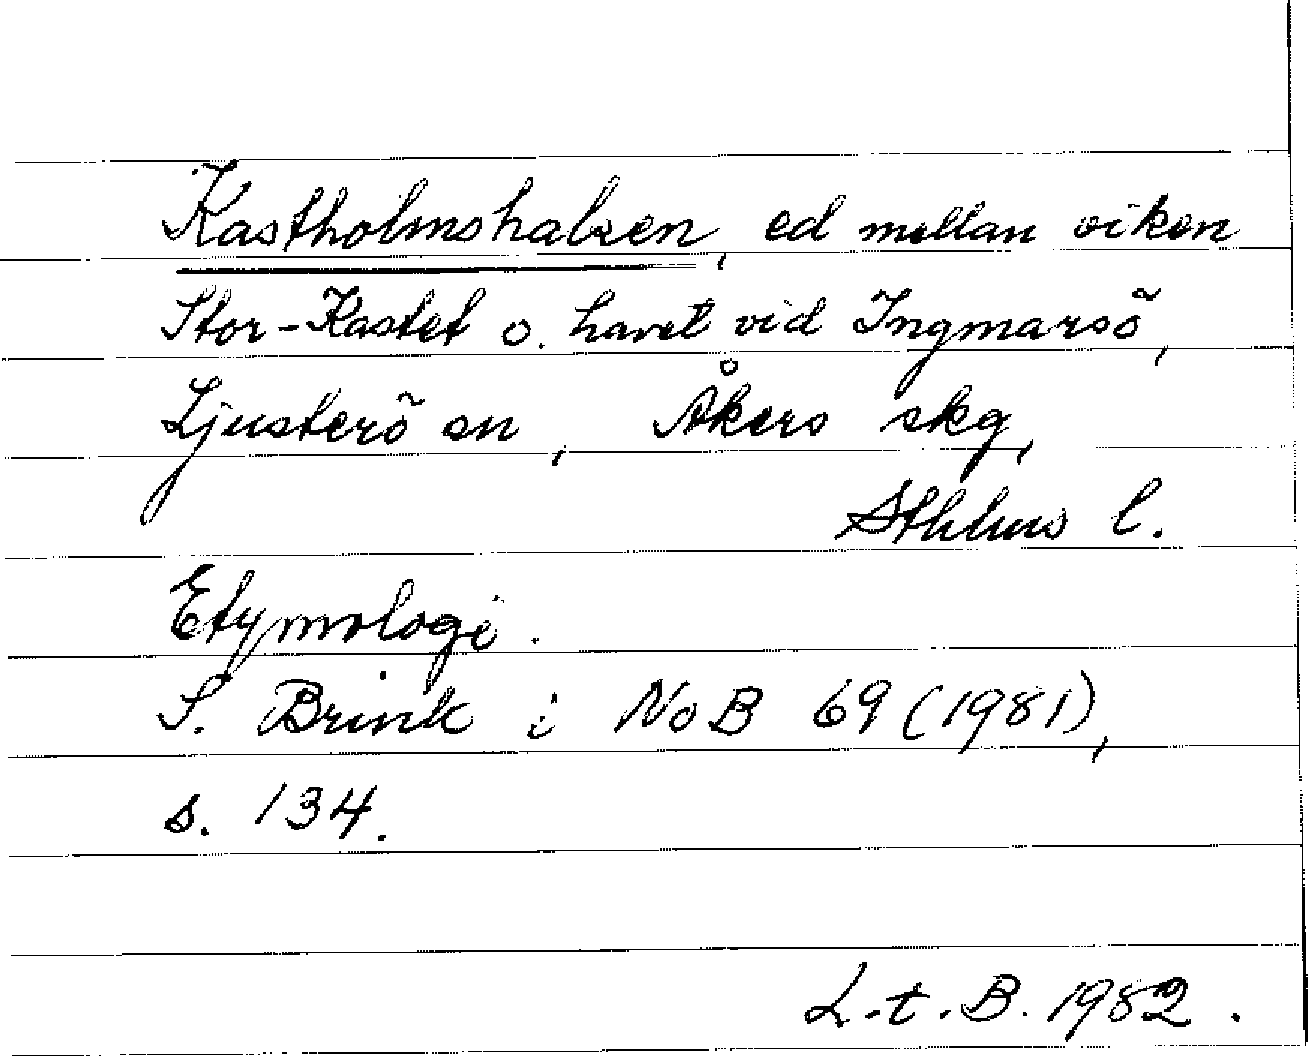 Kastholmshalsen, ed mellan viken
Stor-Kastet o. havet vid Ingmarsö,
Ljusterö sn, Åkers skg,
Sthlms l.
Etymologi.
S. Brink i NoB 69 (1981),
s. 134.
L.t.B. 1982.